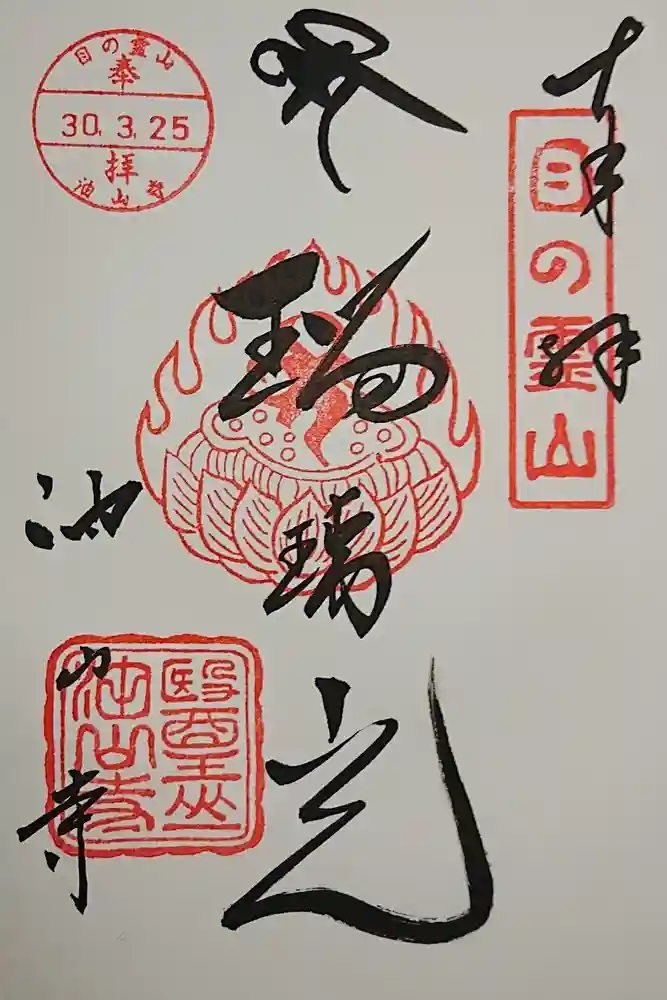 奉拝
目の霊山
瑠璃光
油山寺
目の霊山
奉
30.3.25
拝
油山寺
醫王山
油山寺